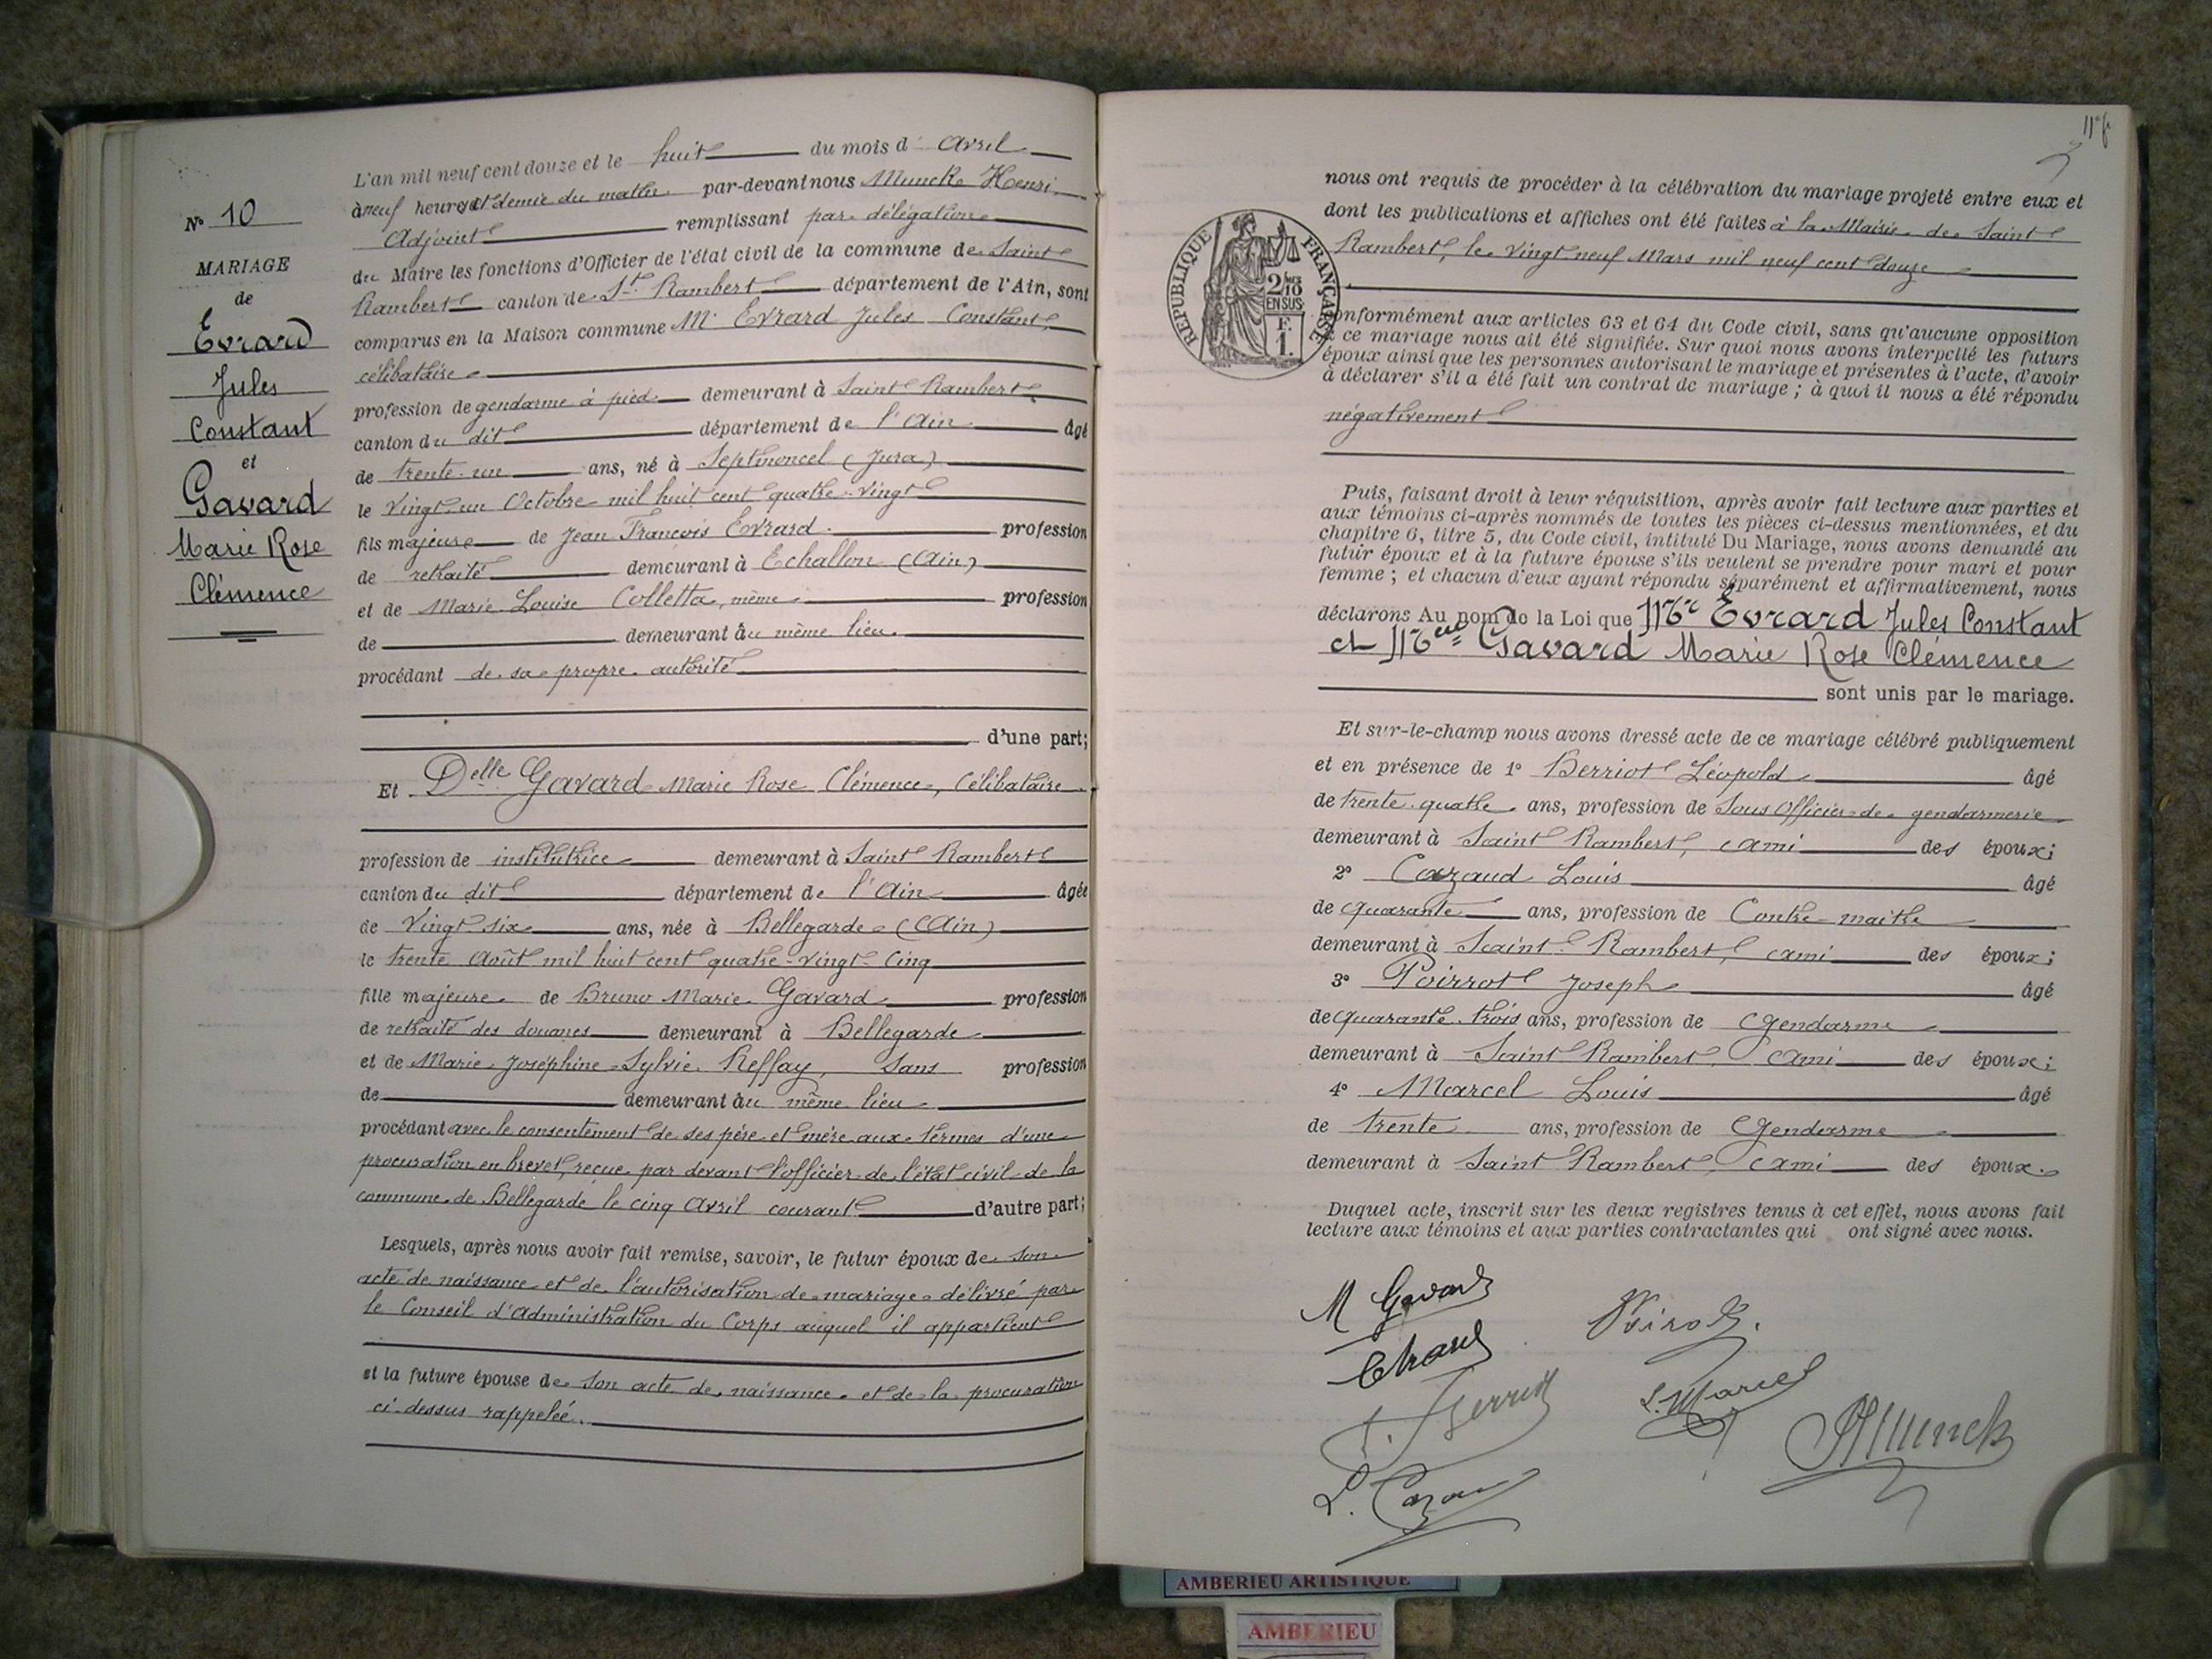 N° 10
MARIAGE
de
Evrard
Jules
Constant
et
Gavard
Marie Rose
Clémence
L'an mil neuf cent douze et le huit du mois d' Avril
à neuf heures et demie du matin par-devant nous Munck Henri
Adjoint remplissant par délégation
du Maire les fonctions d'Officier de l'état civil de la commune de Saint
Rambert canton de St Rambert département de l'Ain, sont
comparus en la Maison commune Mr Evrard Jules Constant,
célibataire
profession de gendarme à pied demeurant à Saint Rambert
canton du dit département de l'Ain âgé
de trente-un ans, né à Septmoncel (Jura)
le vingt-un Octobre mil huit cent quatre-vingt
fils majeur de Jean François Evrard profession
de retraité demeurant à Echallon (Ain)
et de Marie Louise Colletta, même profession
de demeurant au même lieu.
procédant de sa propre autorité
d'une part;
Et Delle Gavard Marie Rose Clémence, Célibataire
profession de institutrice demeurant à Saint Rambert
canton du dit département de l'Ain âgée
de vingt six ans, née à Bellegarde (Ain)
le trente Août mil huit cent quatre-vingt-cinq
fille majeure de Bruno Marie Gavard profession
de retraité des douanes demeurant à Bellegarde
et de Marie Joséphine Sylvie Reffay, Sans profession
de demeurant au même lieu
procédant avec le consentement de ses père et mère aux termes d'une
procuration en brevet, reçue par devant l'officier de l'état civil de la
commune de Bellegarde le cinq Avril courant d'autre part;
Lesquels, après nous avoir fait remise, savoir, le futur époux de son
acte de naissance et de l'autorisation de mariage délivré par
le Conseil d'Administration du Corps auquel il appartient
et la future épouse de son acte de naissance et de la procuration
ci-dessus rappelée.
11e f
nous ont requis de procéder à la célébration du mariage projeté entre eux et
dont les publications et affiches ont été faites à la Mairie de Saint
Rambert, le vingt neuf Mars mil neuf cent douze
RÉPUBLIQUE FRANÇAISE
2/10
EN SUS
F.
1.
conformément aux articles 63 et 64 du Code civil, sans qu'aucune opposition
à ce mariage nous ait été signifiée. Sur quoi nous avons interpellé les futurs
époux ainsi que les personnes autorisant le mariage et présentes à l'acte, d'avoir
à déclarer s'il a été fait un contrat de mariage; à quoi il nous a été répondu
négativement
Puis, faisant droit à leur réquisition, après avoir fait lecture aux parties et
aux témoins ci-après nommés de toutes les pièces ci-dessus mentionnées, et du
chapitre 6, titre 5, du Code civil, intitulé Du Mariage, nous avons demandé au
futur époux et à la future épouse s'ils veulent se prendre pour mari et pour
femme; et chacun d'eux ayant répondu séparément et affirmativement, nous
déclarons Au nom de la Loi que Mr Evrard Jules Constant
et Melle Gavard Marie Rose Clémence
sont unis par le mariage.
Et sur-le-champ nous avons dressé acte de ce mariage célébré publiquement
et en présence de 1° Berriot Léopold âgé
de trente-quatre ans, profession de Sous Officier de gendarmerie
demeurant à Saint Rambert, ami des époux;
2° Cazaud Louis âgé
de quarante ans, profession de Contre-maitre
demeurant à Saint Rambert, ami des époux;
3° Poirrot Joseph âgé
de quarante-trois ans, profession de Gendarme
demeurant à Saint Rambert ami des époux;
4° Marcel Louis âgé
de trente ans, profession de Gendarme
demeurant à Saint Rambert, ami des époux.
Duquel acte, inscrit sur les deux registres tenus à cet effet, nous avons fait
lecture aux témoins et aux parties contractantes qui ont signé avec nous.
M Gavard
Evrard
L. Marcel
HMunck
AMBERIEU ARTISTIQUE
AMBERIEU